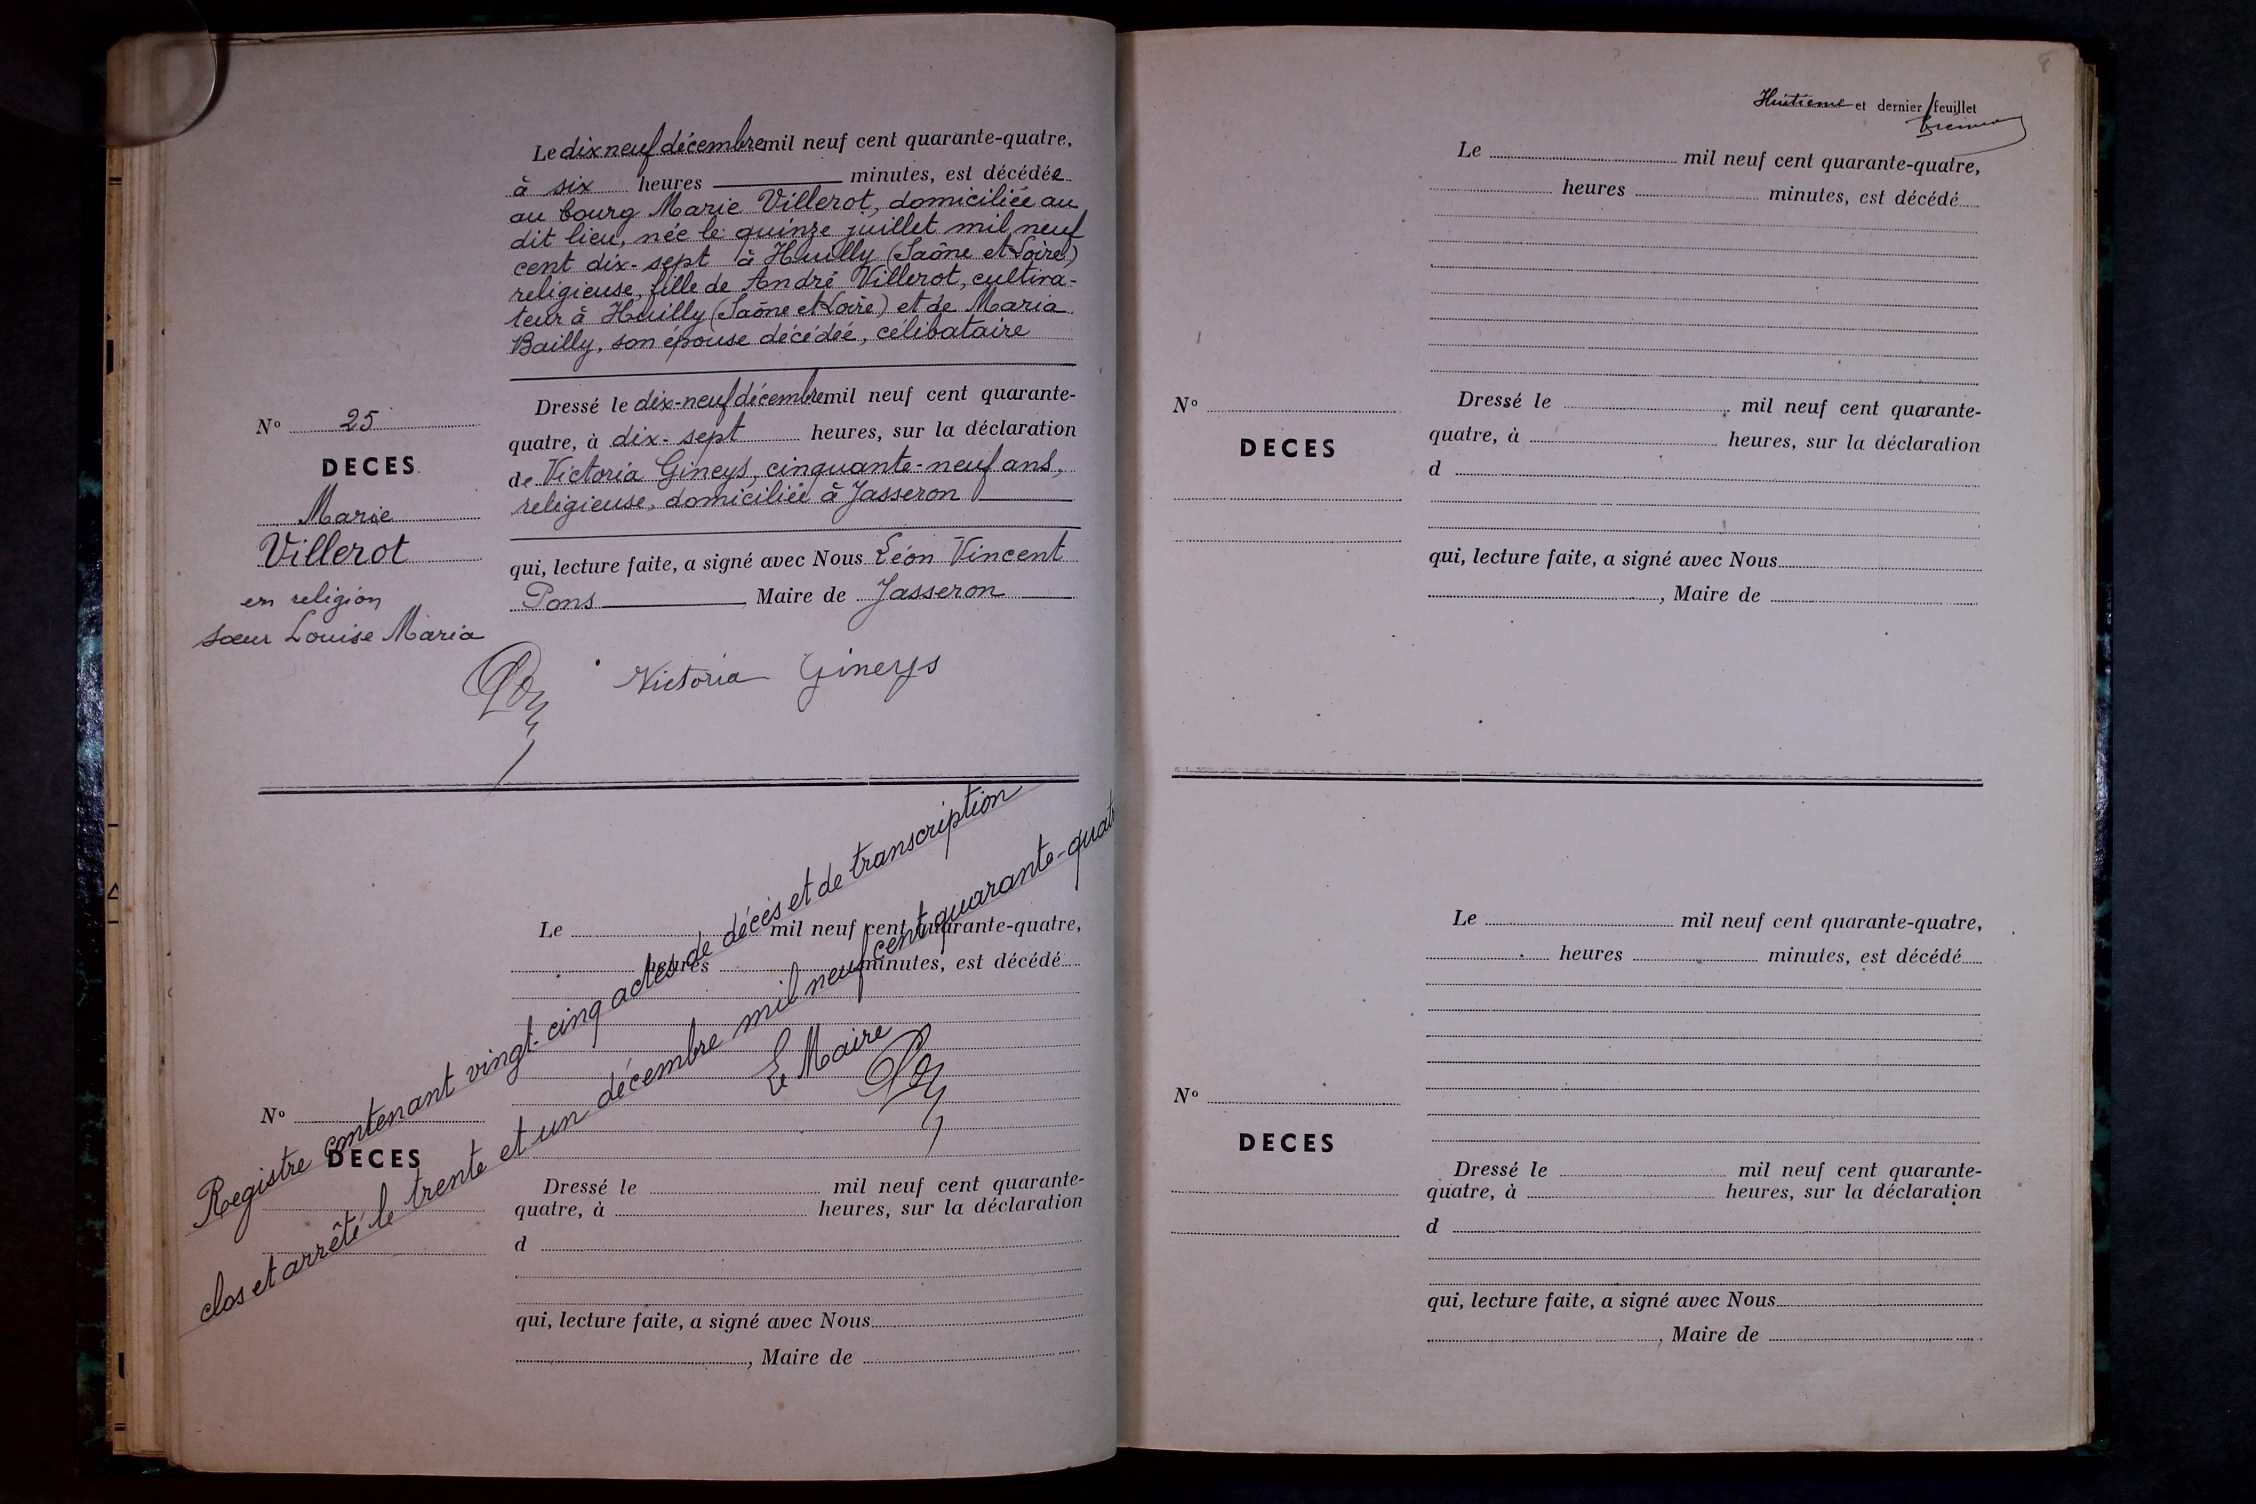 Le dix neuf décembre mil neuf cent quarante-quatre,
à six heures minutes, est décédée
au bourg Marie Villerot, domiciliée au
dit lieu, née le quinze juillet mil neuf
cent dix-sept à Huilly (Saône et Loire)
religieuse, fille de André Villerot, cultiva-
teur à Huilly (Saône et Loire) et de Maria
Bailly, son épouse décédée, celibataire
Dressé le dix-neuf décembre mil neuf cent quarante-
quatre, à dix-sept heures, sur la déclaration
de Victoria Gineys, cinquante-neuf ans,
religieuse, domiciliée à Jasseron
qui, lecture faite, a signé avec Nous Léon Vincent
Pons, Maire de Jasseron
Nº 25
DECES
Marie
Villerot
en religion
sœur Louise Maria
Victoria Gineys
Registre contenant vingt-cinq actes de décès et de transcription
clos et arrêté le trente et un décembre mil neuf cent quarante-quat
Le Maire
Le mil neuf cent quarante-quatre,
heures minutes, est décédé
Nº
DECES
Dressé le mil neuf cent quarante-
quatre, à heures, sur la déclaration
d
qui, lecture faite, a signé avec Nous
, Maire de
8
Huitieme et dernier feuillet
Le mil neuf cent quarante-quatre,
heures minutes, est décédé
Nº
DECES
Dressé le mil neuf cent quarante-
quatre, à heures, sur la déclaration
d
qui, lecture faite, a signé avec Nous
, Maire de
Le mil neuf cent quarante-quatre,
heures minutes, est décédé
Nº
DECES
Dressé le mil neuf cent quarante-
quatre, à heures, sur la déclaration
d
qui, lecture faite, a signé avec Nous
, Maire de